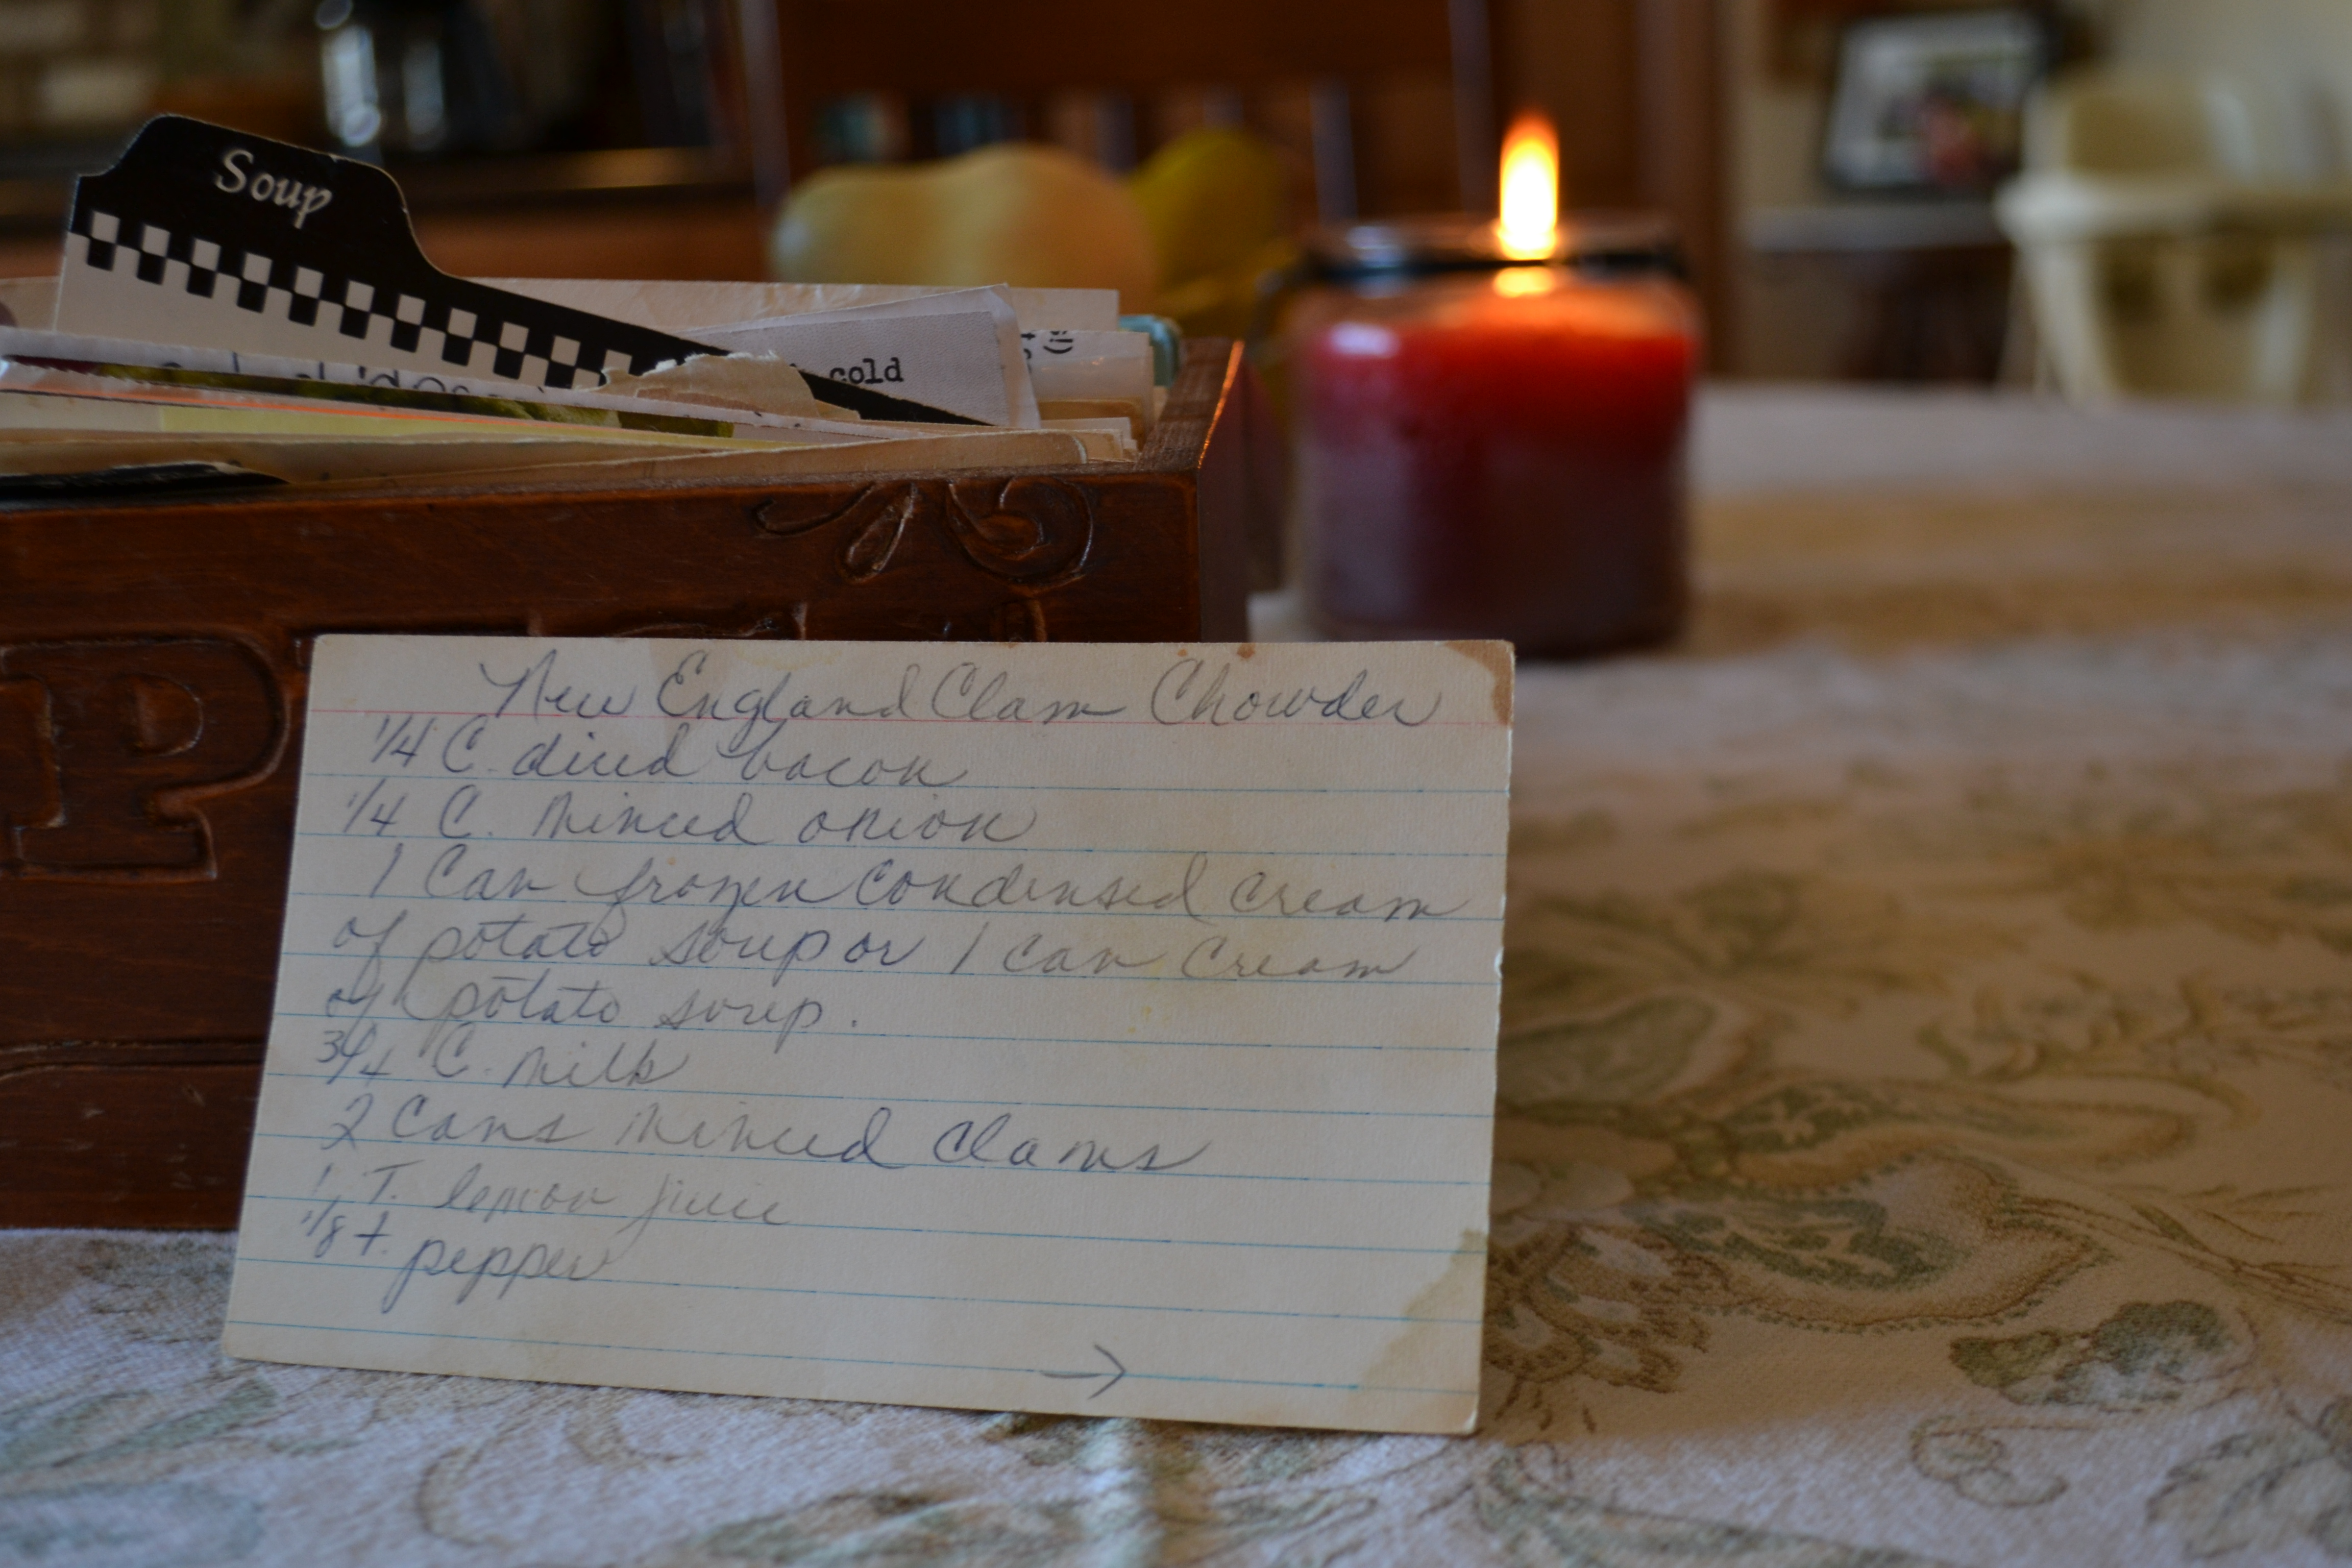 Soup
cold
P
New England Clam Chowder
1/4 C. diced bacon
1/4 C. minced onion
1 Can frozen Condensed Cream
of potato soup or 1 can Cream
of potato soup.
3/4 C. milk
2 Cans minced Clams
1 T. lemon juice
1/8 t. pepper
→